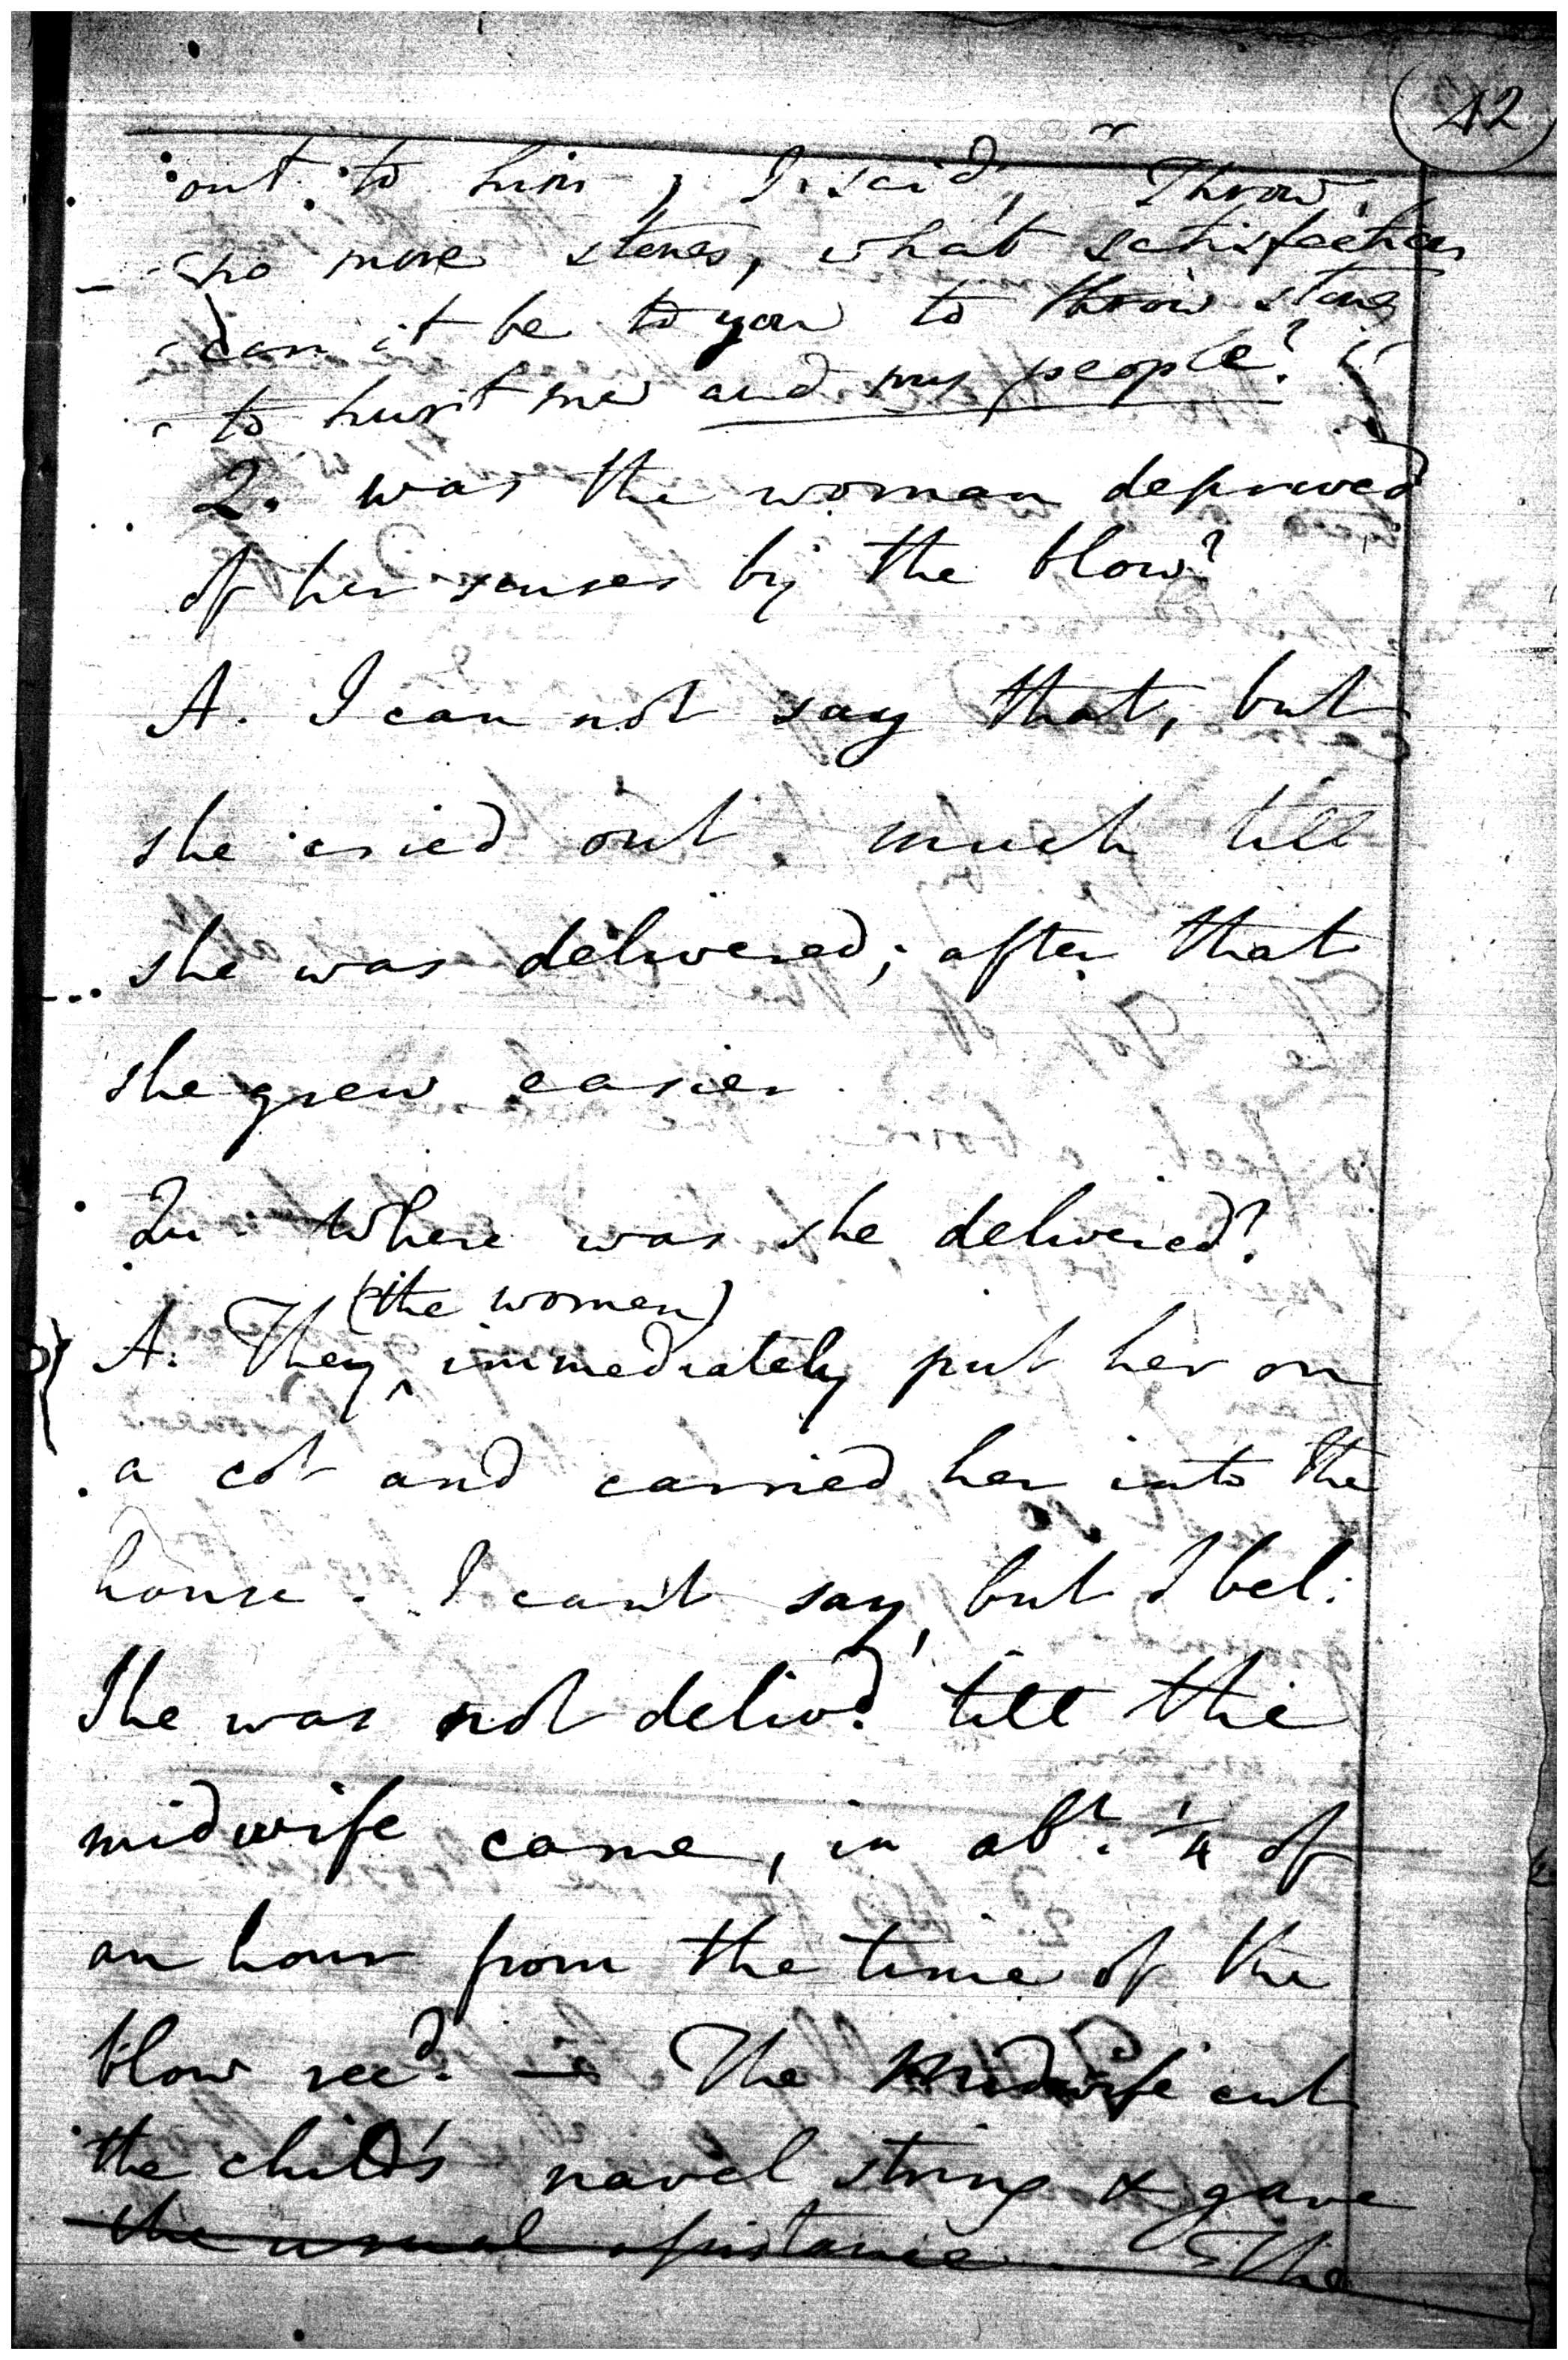 42
out to him, I said, "Throw
no more stones, what satisfaction
can it be to you to throw stones
to hurt me and my people?"
Q. was the woman deprived
of her senses by the blow?
A. I can not say that, but
she cried out much till
she was delivered; after that
she grew easier.
Qu. Where was she delivered?
(the women)
A. They ^ immediately put her on
a cot and carried her into the
house. I can't say, but I bel:
She was not delivd. till the
midwife came, in abt. 1/4 of
an hour from the time of the
blow recd. — The Midwife cut
the child's navel string & gave
the usual assistance. The